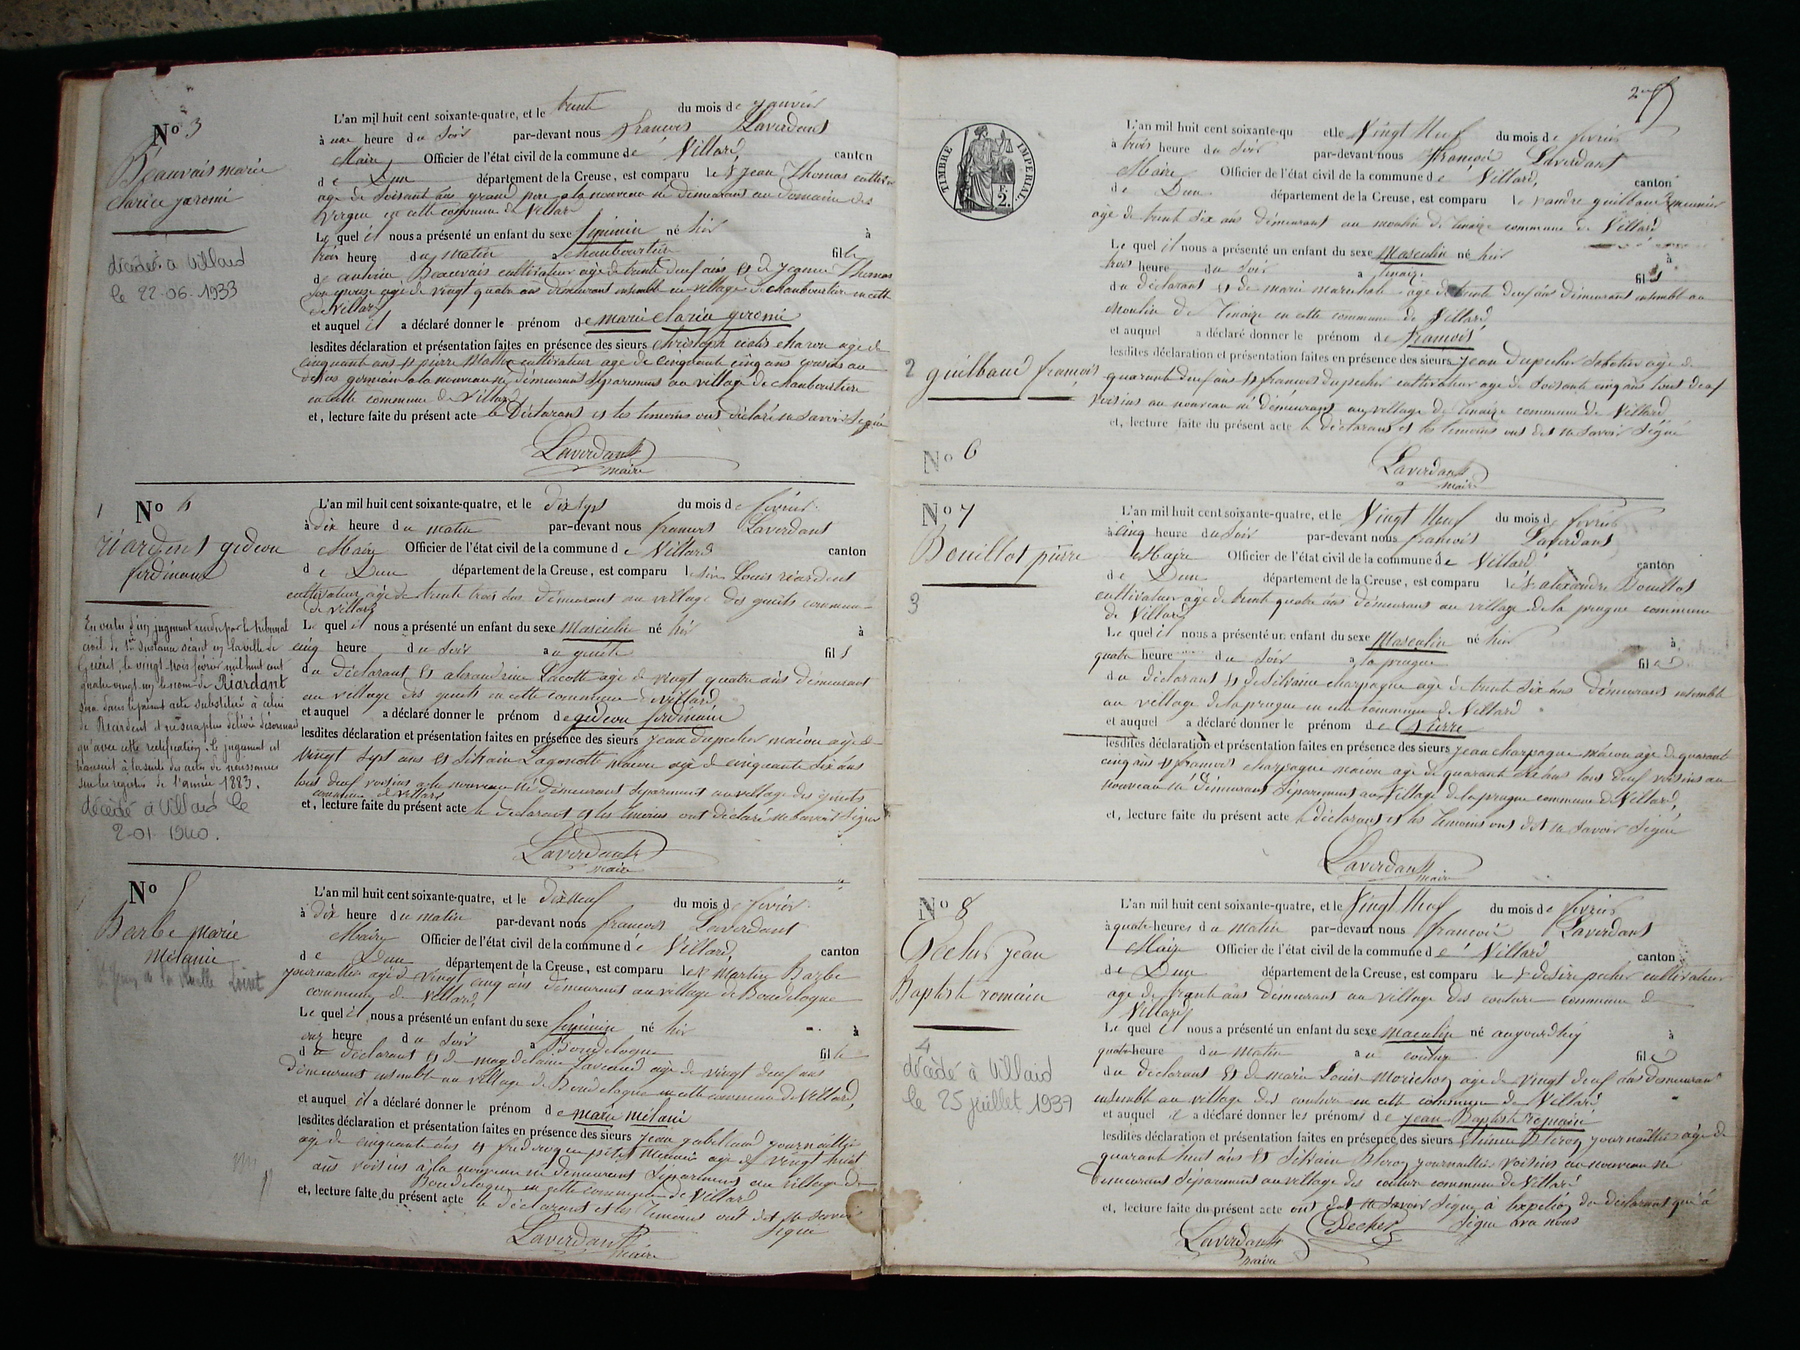 No 3
Beauvais marie
claric geromi
décédé à Villard
le 22-06-1933
L'an mil huit cent soixante-quatre, et le trente du mois de janvier
à une heure du soir par-devant nous françois Laverdant
Maire Officier de l'état civil de la commune de Villard, canton
de Dun département de la Creuse, est comparu le Sr jean Thomas
age de soixante ans grand père a la nouveau né demeurant au domaine des
Vergne en cette commune de Villard
Le quel il nous a présenté un enfant du sexe féminin né hier à
trois heure du matin fille
de Beauvais cultivateur age de trente deuf ans et de jeanne Thomas
son épouse agé de vingt quatre ans demeurant ensemble au village de
de Villard
et auquel il a déclaré donner le prénom de marie claric geromi
lesdites déclaration et présentation faites en présence des sieurs age de
cinquante ans et pierre cultivateur age de cinquante cinq ans
germain a la nouveau né demeurant séparément au village de
en cette commune de Villard
et, lecture faite du présent acte le déclarant et les temoins ont déclaré ne savoir signé
Laverdant
maire
1
No 4
riardent gedeon
ferdinand
En vertu d'un jugement rendu par le tribunal
civil de 1ère Instance séant en la ville de
Guéret, le vingt trois février mil huit cent
quatre vingt un, le nom de Riardant
sera dans le présent acte substitué à celui
de Riardent et ne sera plus délivré désormais
qu'avec cette rectification. Le jugement est
transcrit à la suite des actes de naissances
sur les registres de l'année 1883.
décédé à Villard le
2-01-1940.
L'an mil huit cent soixante-quatre, et le dix sept du mois de février
à dix heure du matin par-devant nous françois Laverdant
Maire Officier de l'état civil de la commune de Villard canton
de Dun département de la Creuse, est comparu le sieur Louis riardent
cultivateur age de trente trois ans demeurant au village des commune
de Villard
Le quel il nous a présenté un enfant du sexe Masculin né hier à
cinq heure du soir fils
du déclarant et alexandrine Lacotte agé de vingt quatre ans demeurant
au village des en cette commune de Villard
et auquel a déclaré donner le prénom de gedeon ferdinand
lesdites déclaration et présentation faites en présence des sieurs jean dupecher macon age de
vingt sept ans et Silvain macon age de cinquante six ans
tous deuf voisins a le nouveau né demeurant séparément au village des
commune de Villard
et, lecture faite du présent acte le déclarant et les témoins ont déclaré ne savoir signer
Laverdant
maire
No 5
Barbe marie
mélanie
L'an mil huit cent soixante-quatre, et le dix neuf du mois de février
à dix heure du matin par-devant nous françois Laverdant
Maire Officier de l'état civil de la commune de Villard, canton
de Dun département de la Creuse, est comparu le Sr Martin Barbe
journaillier agé de vingt cinq ans demeurant au village de Boudelogne
commune de Villard
Le quel il nous a présenté un enfant du sexe féminin né hier à
onz heure du soir à Boudelogne fille
du déclarant et de magdelaine agé de vingt deuf ans
demeurant ensemble au village de Boudelogne en cette commune de Villard,
et auquel il a déclaré donner le prénom de marie mélani
lesdites déclaration et présentation faites en présence des sieurs jean journaillier
agé de cinquante ans et frederique petit age de vingt huit
ans voisins à la nouveau né demeurant séparément au village de
Boudelogne en cette commune de Villard
et, lecture faite du présent acte le déclarant et les témoins ont dit ne savoir
signer
Laverdant
maire
TIMBRE IMPÉRIAL.
F.
2.
L'an mil huit cent soixante-qu et le Vingt neuf du mois de février
à trois heure du soir par-devant nous françois Laverdant
Maire Officier de l'état civil de la commune de Villard, canton
de Dun département de la Creuse, est comparu le nandre guilbaud meunier
age de trente six ans demeurant au moulin de commune de Villard
Le quel il nous a présenté un enfant du sexe Masculin né hier à
trois heure du soir a fils
du déclarant et de marie age de trente deuf ans demeurant ensemble au
moulin de en cette commune de Villard
et auquel a déclaré donner le prénom de françois
lesdites déclaration et présentation faites en présence des sieurs jean dupecher Sabotier age de
quarante deuf ans et françois dupecher cultivateur age de soixante cinq ans tout deuf
voisins au nouveau né demeurant au village de commune de Villard
et, lecture faite du présent acte le déclarant et les temoins ont dit ne savoir signé
Laverdant
maire
2 guilbaud françois
No 6
No 7
Bouillot pierre
3
L'an mil huit cent soixante-quatre, et le Vingt neuf du mois de février
à cinq heure du soir par-devant nous françois Laverdant
Maire Officier de l'état civil de la commune de Villard canton
de Dun département de la Creuse, est comparu le Sr alexandre Bouillot
cultivateur age de trente quatre ans demeurant au village de la prugne commune
de Villard
Le quel il nous a présenté un enfant du sexe Masculin né hier à
quatre heure du soir a la prugne fils
du déclarant et de Silvaine charpagne age de trente six ans demeurant ensemble
au village de la prugne en cette commune de Villard
et auquel a déclaré donner le prénom de Pierre
lesdites déclaration et présentation faites en présence des sieurs jean charpagne macon age de quarante
cinq ans et françois charpagne macon age de quarante ans tous deuf voisins au
nouveau né demeurant séparément au Village de la prugne commune de Villard,
et, lecture faite du présent acte le déclarant et les témoins ont dit ne savoir signé
Laverdant
maire
No 8
Pecher jean
Baptiste romain
4
décédé à Villard
le 25 juillet 1937
L'an mil huit cent soixante-quatre, et le Vingt neuf du mois de février
à quatre heures du matin par-devant nous françois Laverdant
Maire Officier de l'état civil de la commune de Villard canton
de Dun département de la Creuse, est comparu le Sr desire pecher cultivateur
age de trente ans demeurant au village des couture commune de
Villard
Le quel il nous a présenté un enfant du sexe masculin né aujourdhuy à
quatre heure du matin a couture fils
du déclarant et de marie Louise agé de vingt deuf ans demeurant
ensemble au village des couture en cette commune de Villard
et auquel il a déclaré donner les prénoms de jean Baptiste romain
lesdites déclaration et présentation faites en présence des sieurs journaillier age de
quarante huit ans et Silvain journaillier voisins au nouveau né
demeurant séparément au village des couture commune de Villard
et, lecture faite du présent acte ont dit ne savoir signer à lexeption du déclarant qui à
signé avec nous
Laverdant Pecher
maire